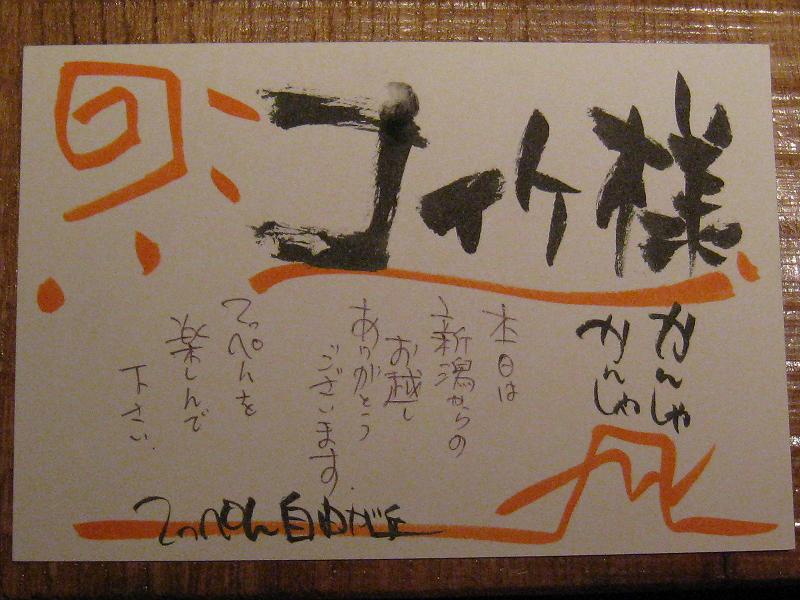 コイケ様
かんしゃ
かんしゃ
本日は
新潟からの
お越し
ありがとう
ございます.
てっぺんを
楽しんで
下さい.
てっぺん自由が丘